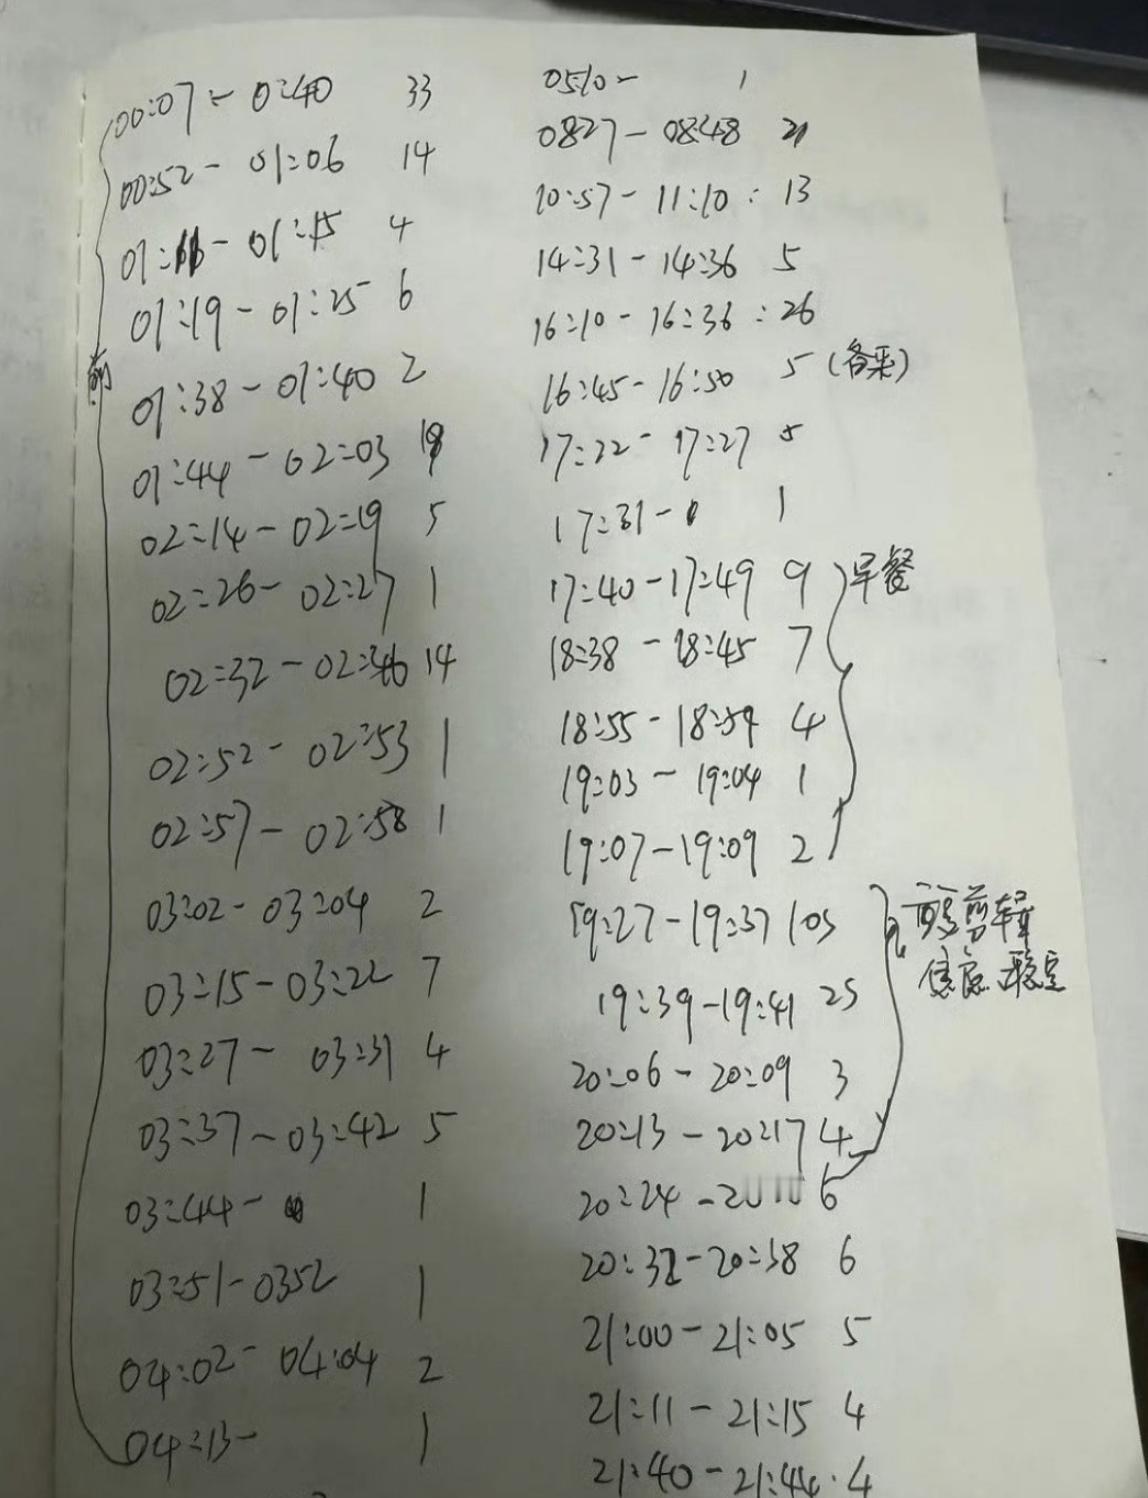 00:07 - 0:40 33
00:52 - 01:06 14
01:11 - 01:15 4
01:19 - 01:25 6
01:38 - 01:40 2
01:44 - 02:03 19
02:14 - 02:19 5
02:26 - 02:27 1
02:32 - 02:46 14
02:52 - 02:53 1
02:57 - 02:58 1
03:02 - 03:04 2
03:15 - 03:22 7
03:27 - 03:31 4
03:37 - 03:42 5
03:44 - 1
03:51 - 0352 1
04:02 - 04:04 2
04:13 - 1
0510 - 1
0827 - 0848 21
10:57 - 11:10 : 13
14:31 - 14:36 5
16:10 - 16:36 : 26
16:45 - 16:50 5 (备采)
17:22 - 17:27 5
17:31 - 1
17:40 - 17:49 9 早餐
18:38 - 18:45 7
18:55 - 18:59 4
19:03 - 19:04 1
19:07 - 19:09 2
19:27 - 19:37 剪辑
19:39 - 19:41 稳定
20:06 - 20:09 3
20:13 - 20:17 4
20:24 - 6
20:32 - 20:38 6
21:00 - 21:05 5
21:11 - 21:15 4
21:40 - 21:44 . 4